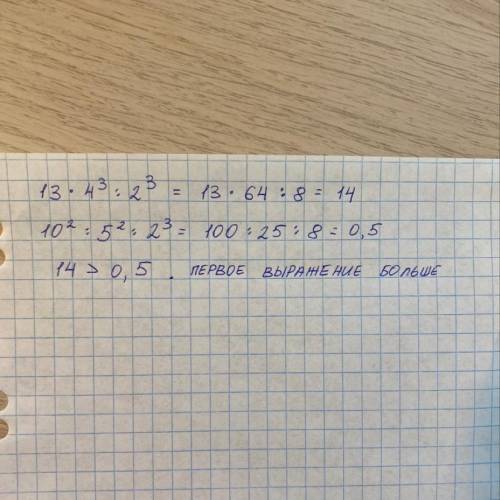 13 · 4³ : 2³ = 13 · 64 : 8 = 14
10² : 5² : 2³ = 100 : 25 : 8 = 0,5
14 > 0,5 . ПЕРВОЕ ВЫРАЖЕНИЕ БОЛЬШЕ